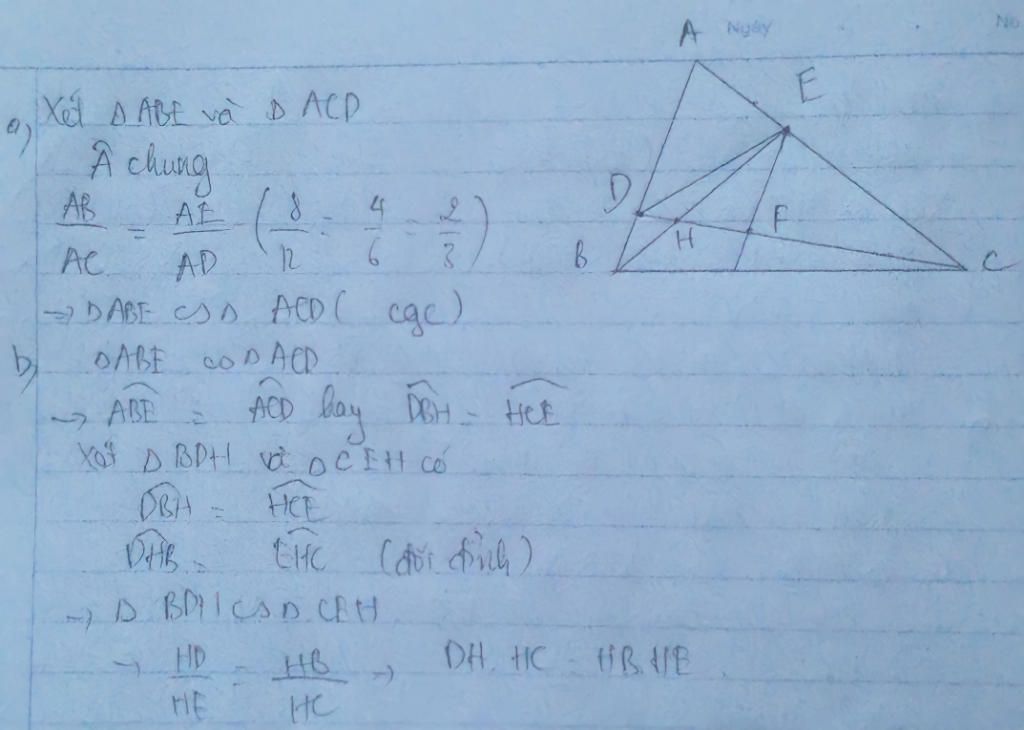 Ngày
No
A
E
D
H
F
B
C
a) Xét Δ ABE và Δ ACD
Â chung
AB/AC = AE/AD (8/12 = 4/6 = 2/3)
→ ΔABE ∽ Δ ACD ( cgc)
b) ΔABE ∽ Δ ACD
→ \widehat{ABE} = \widehat{ACD} hay \widehat{DBH} = \widehat{HCE}
Xét Δ BDH và Δ CEH có
\widehat{DBH} = \widehat{HCE}
\widehat{DHB} = \widehat{EHC} (đối đỉnh)
→ Δ BDH ∽ Δ CEH
→ HD/HE = HB/HC → DH. HC = HB.HE